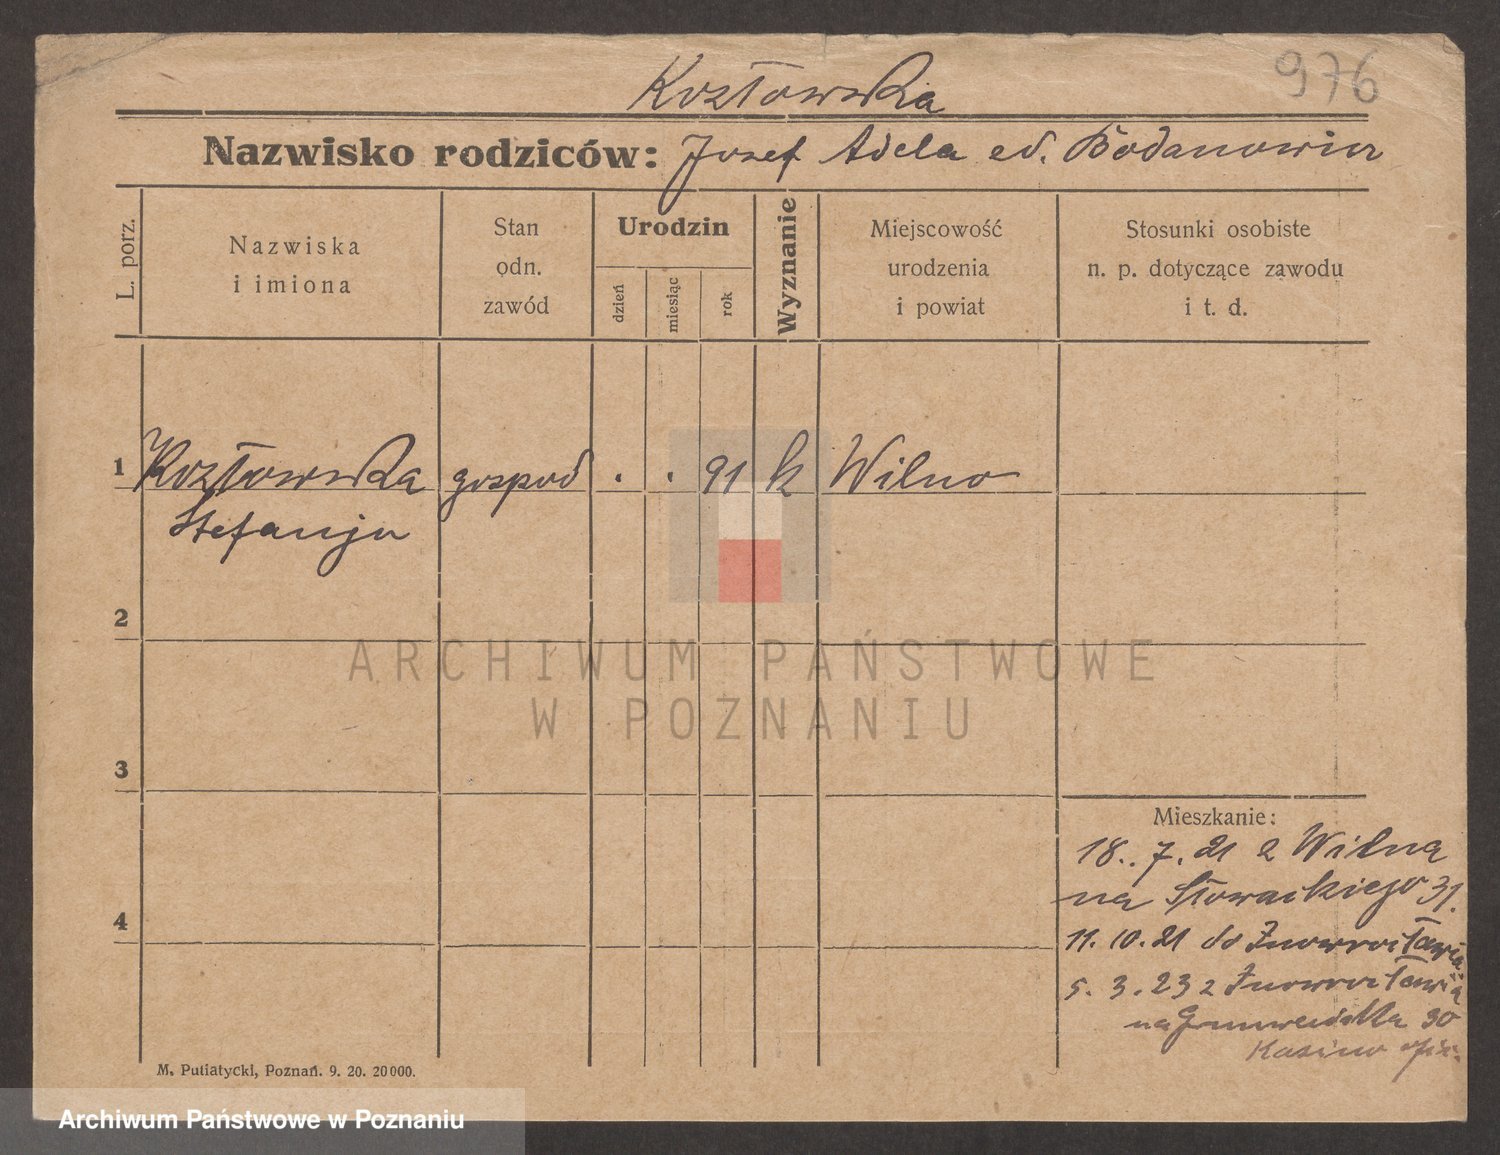 Kozłowska
976
Nazwisko rodziców: Josef Adela
L. porz.
Nazwiska
i imiona
Stan
odn.
zawód
Urodzin
dzień
miesiąc
rok
Wyznanie
Miejscowość
urodzenia
i powiat
Stosunki osobiste
n. p. dotyczące zawodu
i t. d.
1 Kozłowska gospod . . 91 k Wilno
Stefanja
2
ARCHIWUM PAŃSTWOWE
W POZNANIU
3
Mieszkanie:
18. 7. 21 z Wilna
na Słowackiego 31.
4
11. 10. 21 do Inowrocławia
5. 3. 23 z Inowrocławia
na Grunwaldzka 30
Kasino
M. Putiatycki, Poznań. 9. 20. 20000.
Archiwum Państwowe w Poznaniu